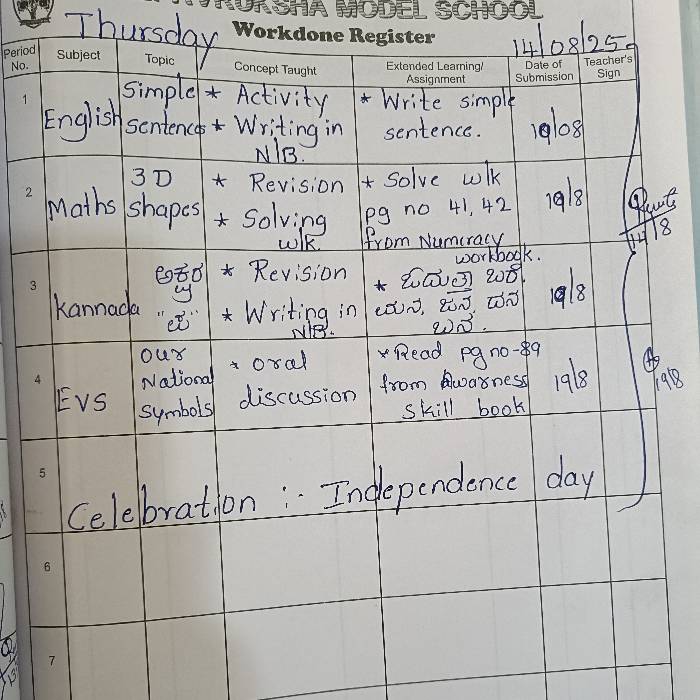 MODEL SCHOOL
Thursday
Workdone Register
14/08/25
Period No. Subject Topic Concept Taught Extended Learning/ Assignment Date of Submission Teacher's Sign
1 English Simple sentences * Activity * Writing in N/B. * Write simple sentence. 19/08
2 Maths 3D shapes * Revision * Solving w/k. * Solve w/k pg no 41, 42 from Numcracy workbook. 19/8
14/8
3 Kannada ಅಕ್ಷರ * Revision * Writing in N/B. * ಓದುತ್ತಾ ಬರೆ 19/8
4 EVS our National Symbols * oral discussion * Read pg no-89 from Awarness skill book 19/8
19/8
5 Celebration :- Independence day
6
7